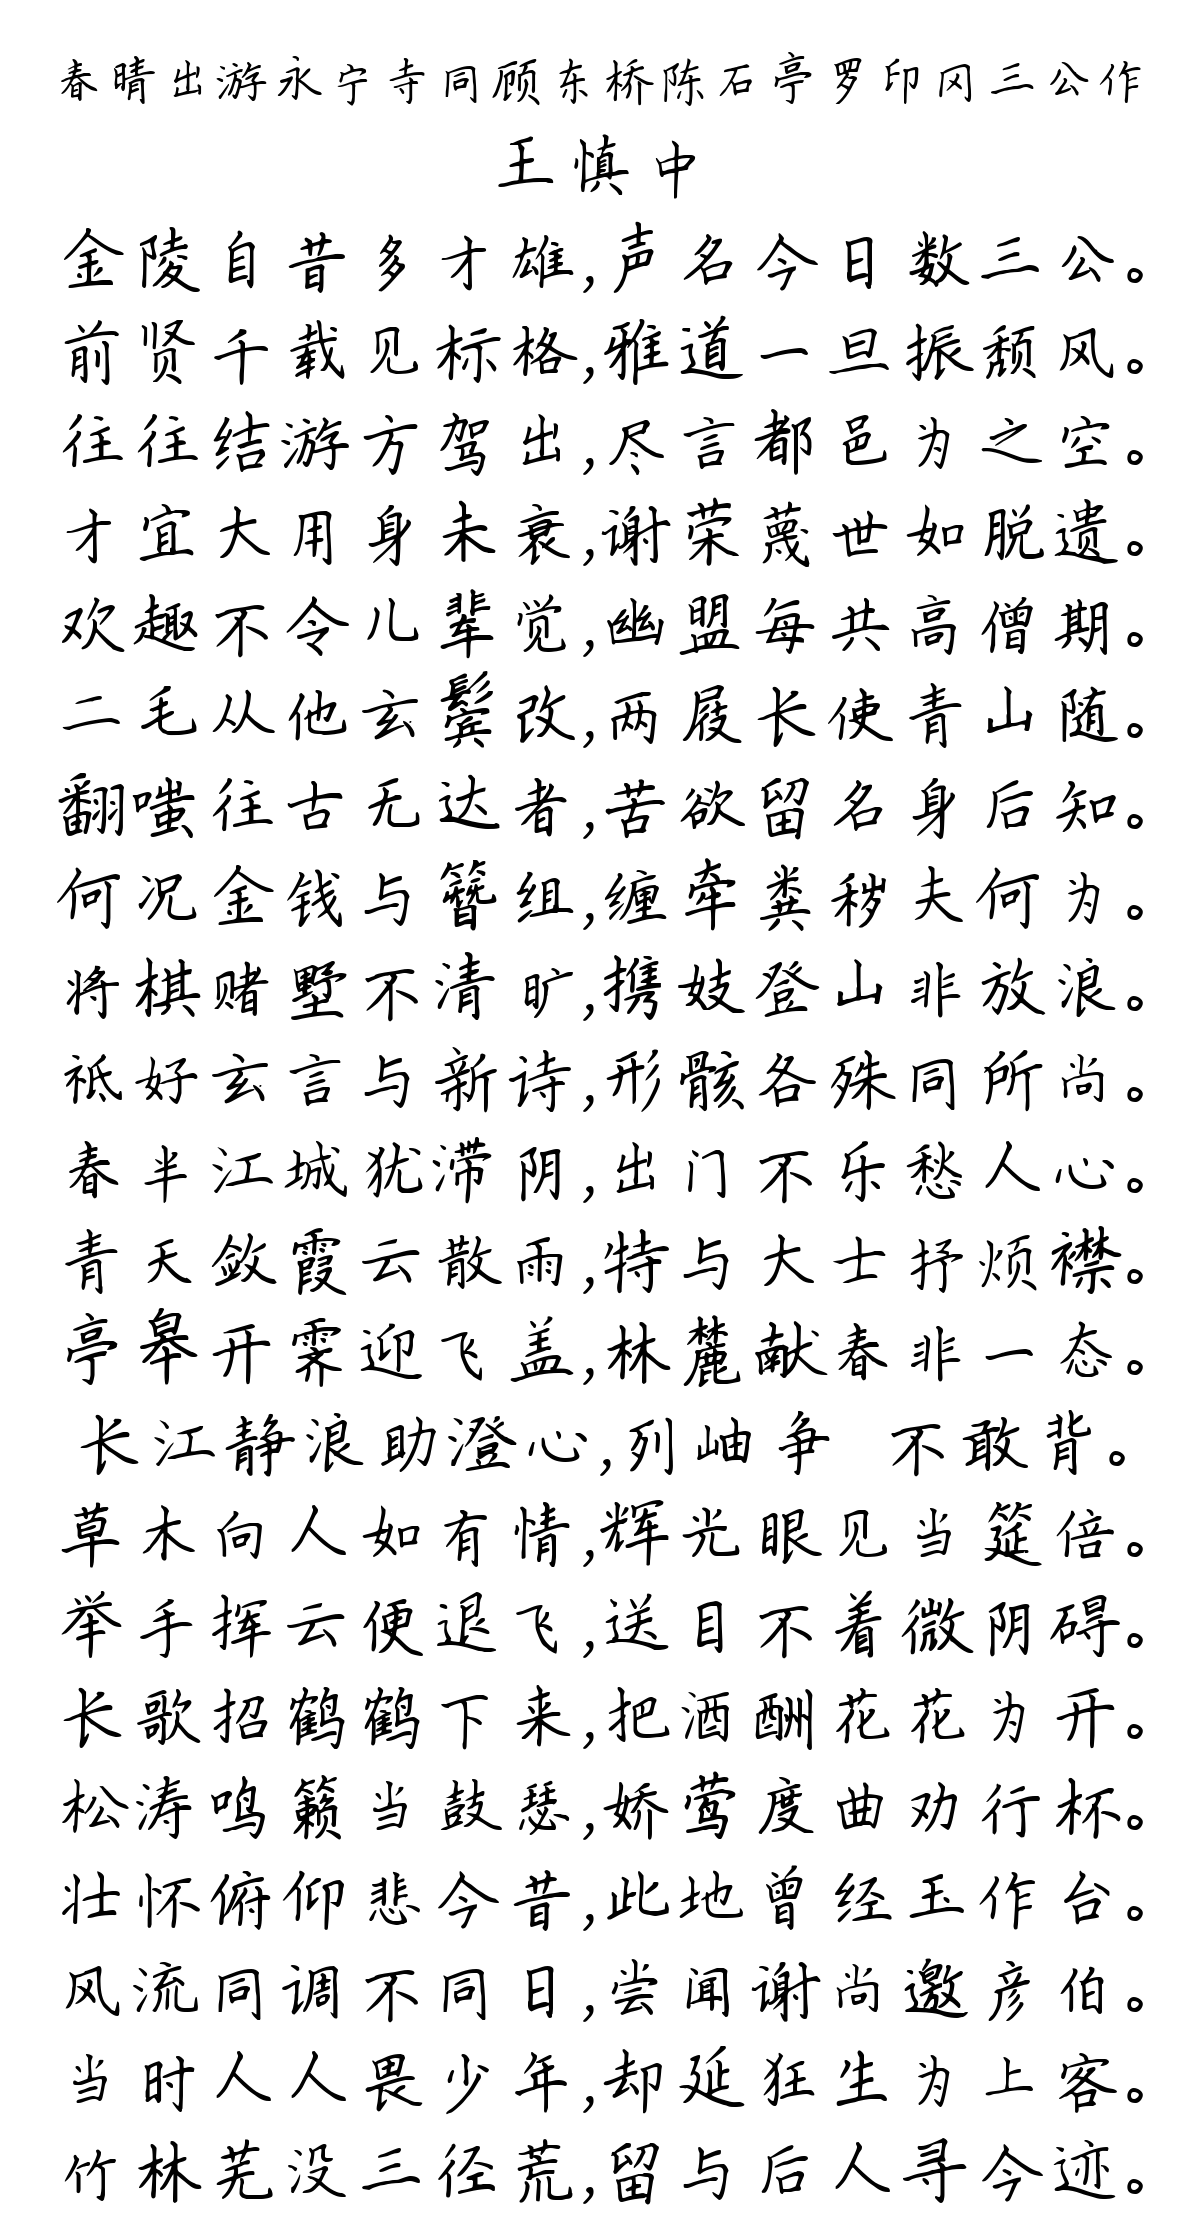 春晴出游永宁寺同顾东桥陈石亭罗印冈三公作
王慎中
金陵自昔多才雄,声名今日数三公。
前贤千载见标格,雅道一旦振颓风。
往往结游方驾出,尽言都邑为之空。
才宜大用身未衰,谢荣蔑世如脱遗。
欢趣不令儿辈觉,幽盟每共高僧期。
二毛从他玄鬓改,两屐长使青山随。
翻嗤往古无达者,苦欲留名身后知。
何况金钱与簪组,缠牵粪秽夫何为。
将棋赌墅不清旷,携妓登山非放浪。
祗好玄言与新诗,形骸各殊同所尚。
春半江城犹滞阴,出门不乐愁人心。
青天敛霞云散雨,特与大士抒烦襟。
亭皋开霁迎飞盖,林麓献春非一态。
长江静浪助澄心,列岫争 不敢背。
草木向人如有情,辉光眼见当筵倍。
举手挥云便退飞,送目不着微阴碍。
长歌招鹤鹤下来,把酒酬花花为开。
松涛鸣籁当鼓瑟,娇莺度曲劝行杯。
壮怀俯仰悲今昔,此地曾经玉作台。
风流同调不同日,尝闻谢尚邀彦伯。
当时人人畏少年,却延狂生为上客。
竹林芜没三径荒,留与后人寻今迹。